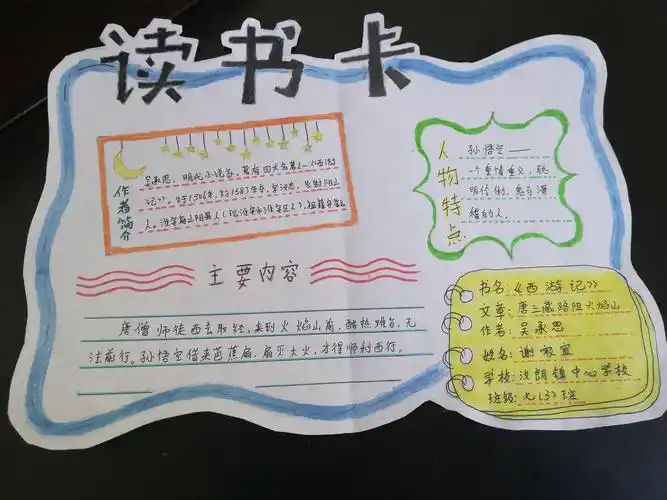 读书卡
作者简介
吴承恩,明代小说家,著有四大名著之一《西游
记》。约1506年,约1583年卒,字汝忠,号射阳山
人。淮安府山阳县人(现淮安市淮安区人),祖籍安徽
人物特点
孙悟空——
一个重情重义,聪
明伶俐,勇敢
的人。
主要内容
唐僧师徒西去取经,来到火焰山前,酷热难当,无
法前行。孙悟空借来芭蕉扇,扇灭大火,才得顺利西行。
书名:《西游记》
文章:唐三藏路阻火焰山
作者:吴承恩
姓名:谢
学校:汶朗镇中心学校
班级:九(3)班